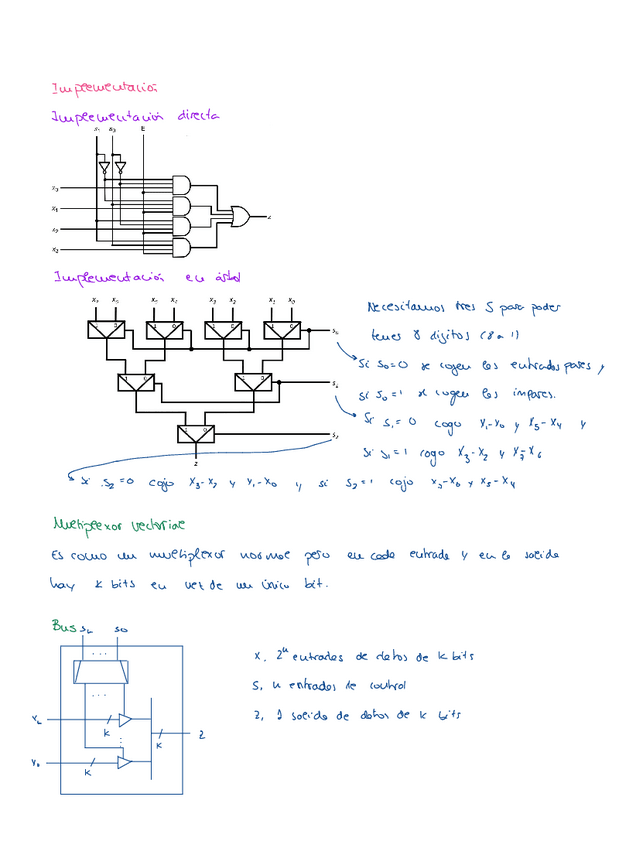 Implementación
Implementación directa
S₁ S₀ E
X₀
X₁
X₂
X₃
z
Implementación en árbol
X₇ X₆ X₅ X₄ X₃ X₂ X₁ X₀
1 0 1 0 1 0 1 0
S₀
1 0 1 0
S₁
1 0
S₂
z
Necesitamos tres S para poder
tener 8 dígitos (8 a 1)
Si S₀=0 se cogen las entradas pares y
si S₀=1 se cogen las impares.
Si S₁=0 cogo X₁-X₀ y X₅-X₄ y
Si S₁=1 cogo X₃-X₂ y X₇-X₆
Si S₂=0 cojo X₃-X₂ y X₁-X₀ y si S₂=1 cojo
Multiplexor vectorial
Es como un multiplexor normal pero en cada entrada y en la salida
hay k bits en vez de un único bit.
Bus
S₀
...
...
K
K
K
Z
X, 2ⁿ entradas de datos de k bits
S, n entradas de control
Z, 1 salida de datos de k bits